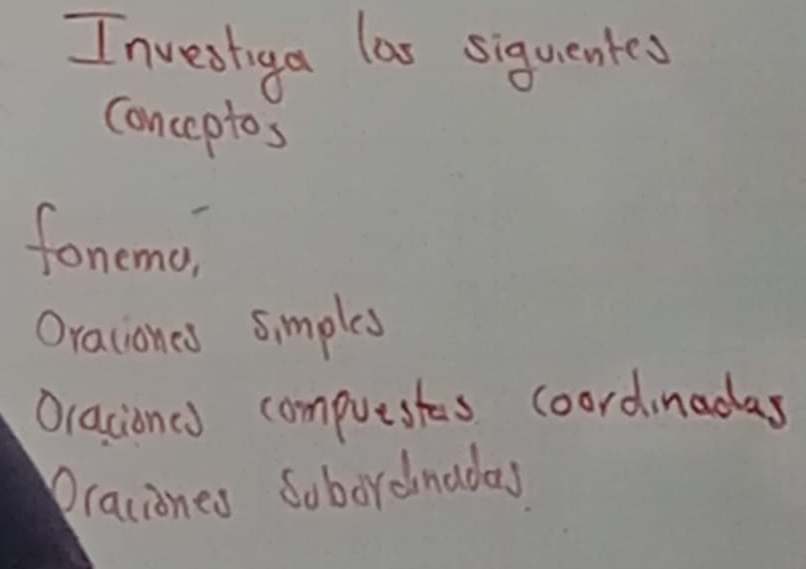 Investiga los siguientes
Conceptos
fonema,
Oraciones simples
Oraciones compuestas coordinadas
Oraciones Subordinadas.